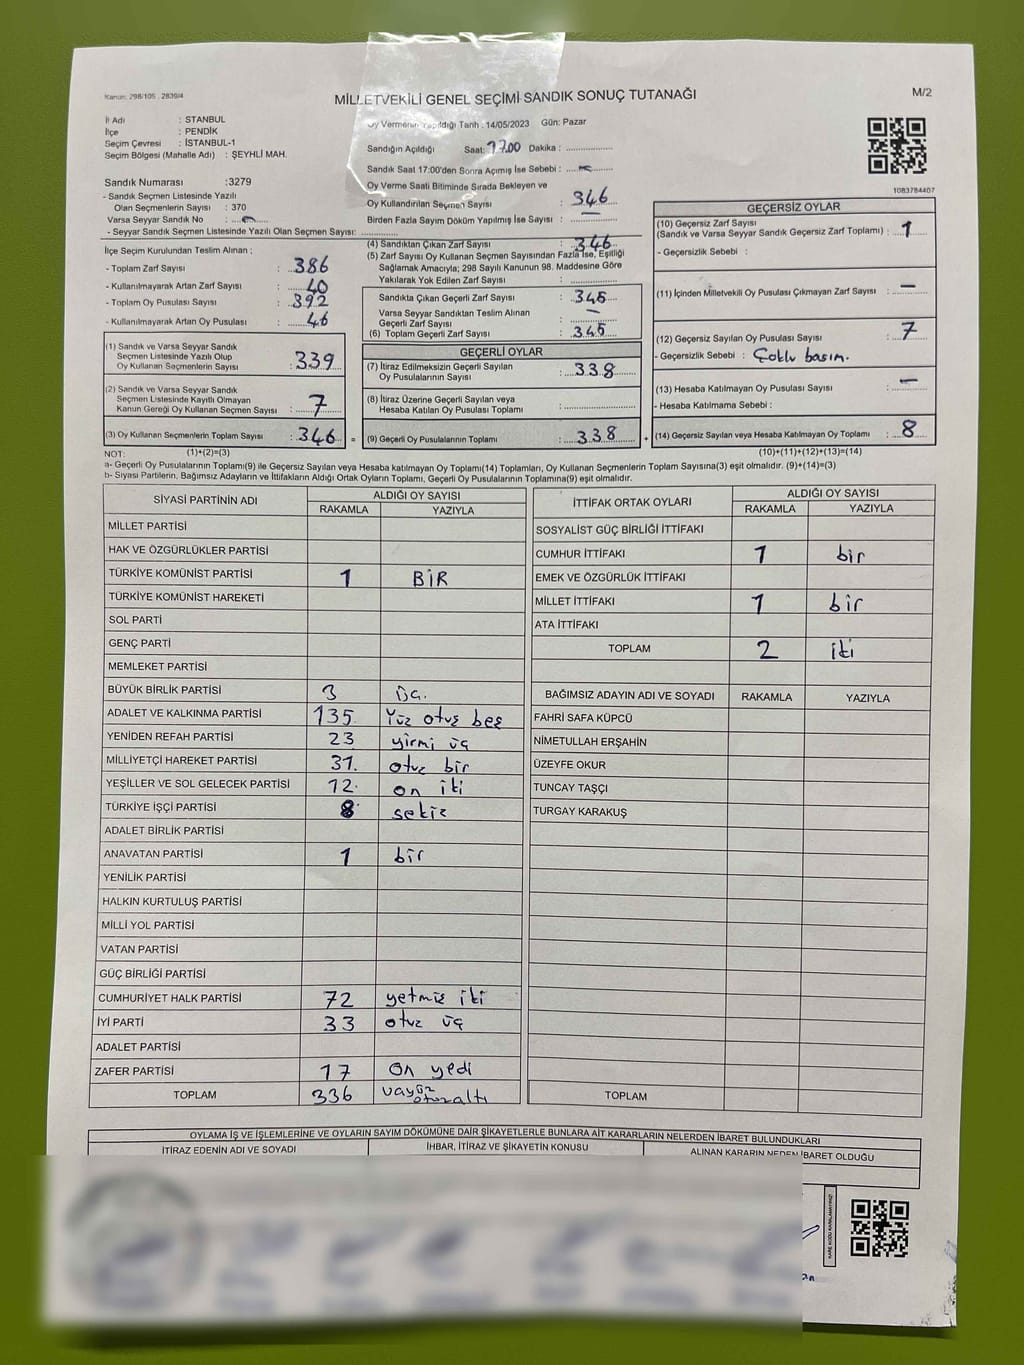 Kanun: 298/105 , 2839/4
MİLLETVEKİLİ GENEL SEÇİMİ SANDIK SONUÇ TUTANAĞI
M/2
İl Adı : STANBUL
İlçe : PENDİK
Seçim Çevresi : İSTANBUL-1
Seçim Bölgesi (Mahalle Adı) : ŞEYHLİ MAH.
Oy Vermenin Yapıldığı Tarih : 14/05/2023 Gün: Pazar
Sandığın Açıldığı Saat: 17.00 Dakika : ..................
Sandık Saat 17:00'den Sonra Açımış İse Sebebi : .....
Oy Verme Saati Bitiminde Sırada Bekleyen ve
Oy Kullandırılan Seçmen Sayısı : 346
Birden Fazla Sayım Döküm Yapılmış İse Sayısı : ..................
1083784407
Sandık Numarası :3279
- Sandık Seçmen Listesinde Yazılı
Olan Seçmenlerin Sayısı : 370
Varsa Seyyar Sandık No : ....
- Seyyar Sandık Seçmen Listesinde Yazılı Olan Seçmen Sayısı: ..................
İlçe Seçim Kurulundan Teslim Alınan ;
- Toplam Zarf Sayısı : 386
- Kullanılmayarak Artan Zarf Sayısı : 40
- Toplam Oy Pusulası Sayısı : 392
- Kullanılmayarak Artan Oy Pusulası : 46
(1) Sandık ve Varsa Seyyar Sandık
Seçmen Listesinde Yazılı Olup
Oy Kullanan Seçmenlerin Sayısı : 339
(2) Sandık ve Varsa Seyyar Sandık
Seçmen Listesinde Kayıtlı Olmayan
Kanun Gereği Oy Kullanan Seçmen Sayısı : 7
(3) Oy Kullanan Seçmenlerin Toplam Sayısı : 346 =
(4) Sandıktan Çıkan Zarf Sayısı : 346
(5) Zarf Sayısı Oy Kullanan Seçmen Sayısından Fazla İse, Eşitliği
Sağlamak Amacıyla; 298 Sayılı Kanunun 98. Maddesine Göre
Yakılarak Yok Edilen Zarf Sayısı : ..................
Sandıkta Çıkan Geçerli Zarf Sayısı : 345
Varsa Seyyar Sandıktan Teslim Alınan
Geçerli Zarf Sayısı : —
(6) Toplam Geçerli Zarf Sayısı : 345
GEÇERLİ OYLAR
(7) İtiraz Edilmeksizin Geçerli Sayılan
Oy Pusulalarının Sayısı : 338
(8) İtiraz Üzerine Geçerli Sayılan veya
Hesaba Katılan Oy Pusulası Toplamı : ..................
(9) Geçerli Oy Pusulalarının Toplamı : 338 +
GEÇERSİZ OYLAR
(10) Geçersiz Zarf Sayısı
(Sandık ve Varsa Seyyar Sandık Geçersiz Zarf Toplamı) : 1
- Geçersizlik Sebebi :
(11) İçinden Milletvekili Oy Pusulası Çıkmayan Zarf Sayısı : —
(12) Geçersiz Sayılan Oy Pusulası Sayısı : 7
- Geçersizlik Sebebi : Çoklu basım.
(13) Hesaba Katılmayan Oy Pusulası Sayısı : —
- Hesaba Katılmama Sebebi :
(14) Geçersiz Sayılan veya Hesaba Katılmayan Oy Toplamı : 8
NOT: (1)+(2)=(3) (10)+(11)+(12)+(13)=(14)
a- Geçerli Oy Pusulalarının Toplamı(9) ile Geçersiz Sayılan veya Hesaba katılmayan Oy Toplamı(14) Toplamları, Oy Kullanan Seçmenlerin Toplam Sayısına(3) eşit olmalıdır. (9)+(14)=(3)
b- Siyasi Partilerin, Bağımsız Adayların ve İttifakların Aldığı Ortak Oyların Toplamı, Geçerli Oy Pusulalarının Toplamına(9) eşit olmalıdır.
SİYASİ PARTİNİN ADI ALDIĞI OY SAYISI
RAKAMLA YAZIYLA
MİLLET PARTİSİ
HAK VE ÖZGÜRLÜKLER PARTİSİ
TÜRKİYE KOMÜNİST PARTİSİ 1 BİR
TÜRKİYE KOMÜNİST HAREKETİ
SOL PARTİ
GENÇ PARTİ
MEMLEKET PARTİSİ
BÜYÜK BİRLİK PARTİSİ 3 üç.
ADALET VE KALKINMA PARTİSİ 135 Yüz otuz beş
YENİDEN REFAH PARTİSİ 23 yirmi üç
MİLLİYETÇİ HAREKET PARTİSİ 31. otuz bir
YEŞİLLER VE SOL GELECEK PARTİSİ 12. on iki
TÜRKİYE İŞÇİ PARTİSİ 8 sekiz
ADALET BİRLİK PARTİSİ
ANAVATAN PARTİSİ 1 bir
YENİLİK PARTİSİ
HALKIN KURTULUŞ PARTİSİ
MİLLİ YOL PARTİSİ
VATAN PARTİSİ
GÜÇ BİRLİĞİ PARTİSİ
CUMHURİYET HALK PARTİSİ 72 yetmiş iki
İYİ PARTİ 33 otuz üç
ADALET PARTİSİ
ZAFER PARTİSİ 17 on yedi
TOPLAM 336
İTTİFAK ORTAK OYLARI ALDIĞI OY SAYISI
RAKAMLA YAZIYLA
SOSYALİST GÜÇ BİRLİĞİ İTTİFAKI
CUMHUR İTTİFAKI 1 bir
EMEK VE ÖZGÜRLÜK İTTİFAKI
MİLLET İTTİFAKI 1 bir
ATA İTTİFAKI
TOPLAM 2 iki
BAĞIMSIZ ADAYIN ADI VE SOYADI RAKAMLA YAZIYLA
FAHRİ SAFA KÜPCÜ
NİMETULLAH ERŞAHİN
ÜZEYFE OKUR
TUNCAY TAŞÇI
TURGAY KARAKUŞ
TOPLAM
OYLAMA İŞ VE İŞLEMLERİNE VE OYLARIN SAYIM DÖKÜMÜNE DAİR ŞİKAYETLERLE BUNLARA AİT KARARLARIN NELERDEN İBARET BULUNDUKLARI
İTİRAZ EDENİN ADI VE SOYADI İHBAR, İTİRAZ VE ŞİKAYETİN KONUSU ALINAN KARARIN NEDEN İBARET OLDUĞU